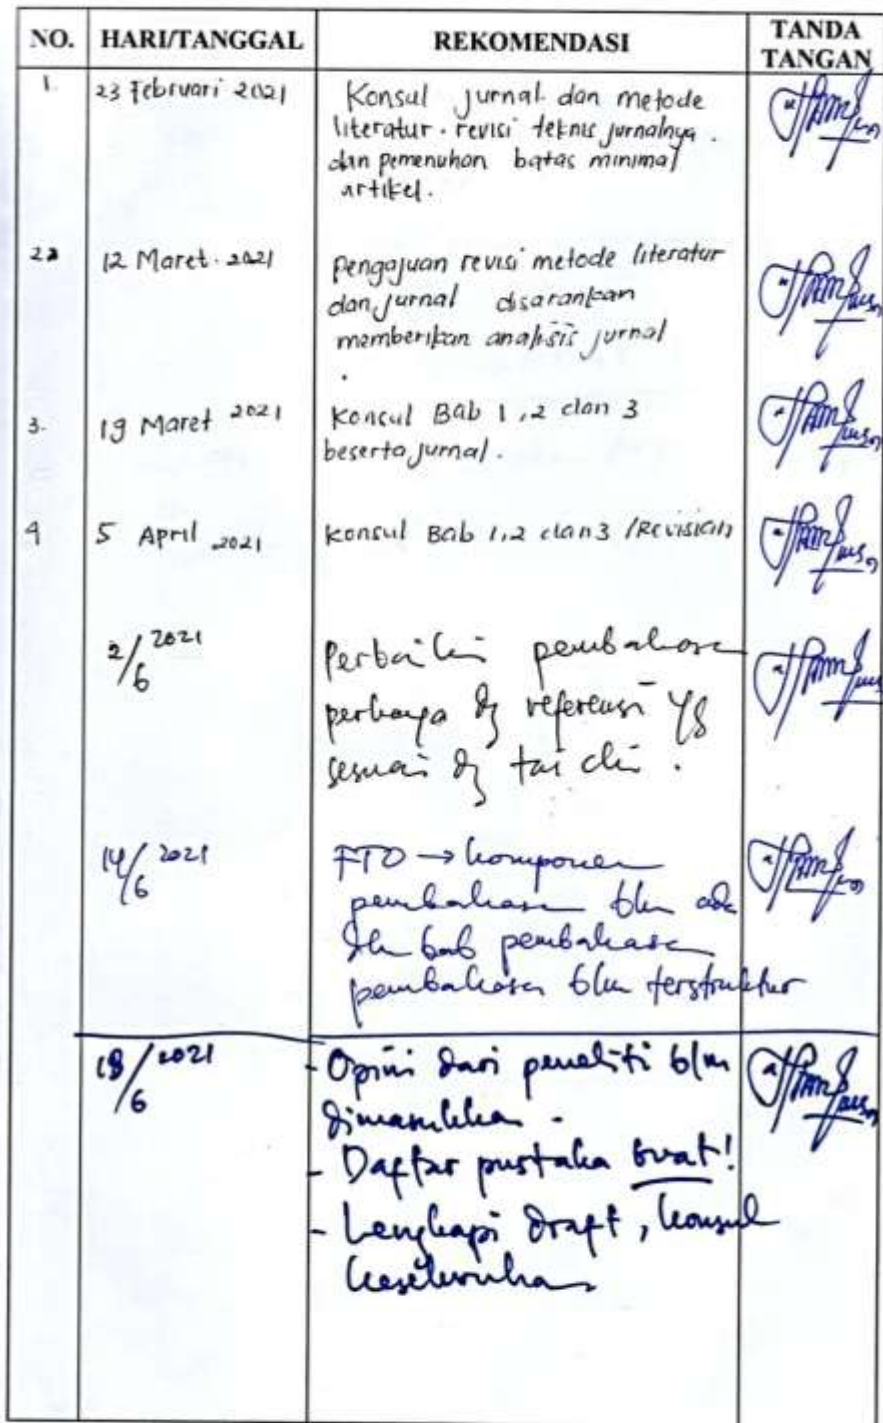 NO. HARI/TANGGAL REKOMENDASI TANDA TANGAN
1. 23 Februari 2021 Konsul jurnal dan metode
literatur. revisi teknis jurnalnya
dan pemenuhan batas minimal
artikel.
2 12 Maret 2021 Pengajuan revisi metode literatur
dan jurnal disarankan
memberikan analisis jurnal
3. 19 Maret 2021 Konsul Bab 1, 2 dan 3
beserta jurnal.
4 5 April 2021 Konsul Bab 1,2 dan 3 /Revisian
2/6 2021 Perbaiki pembahasan
dg referensi yg
sesuai dg tai chi.
14/6 2021 FTO → komponen
pembahasan blm ada
dlm bab pembahasan
pembahasan blm terstruktur
18/6 2021 - Opini dari peneliti blm
dimasukkan.
- Daftar pustaka buat!
- Lengkapi draft, konsul
keseluruhan